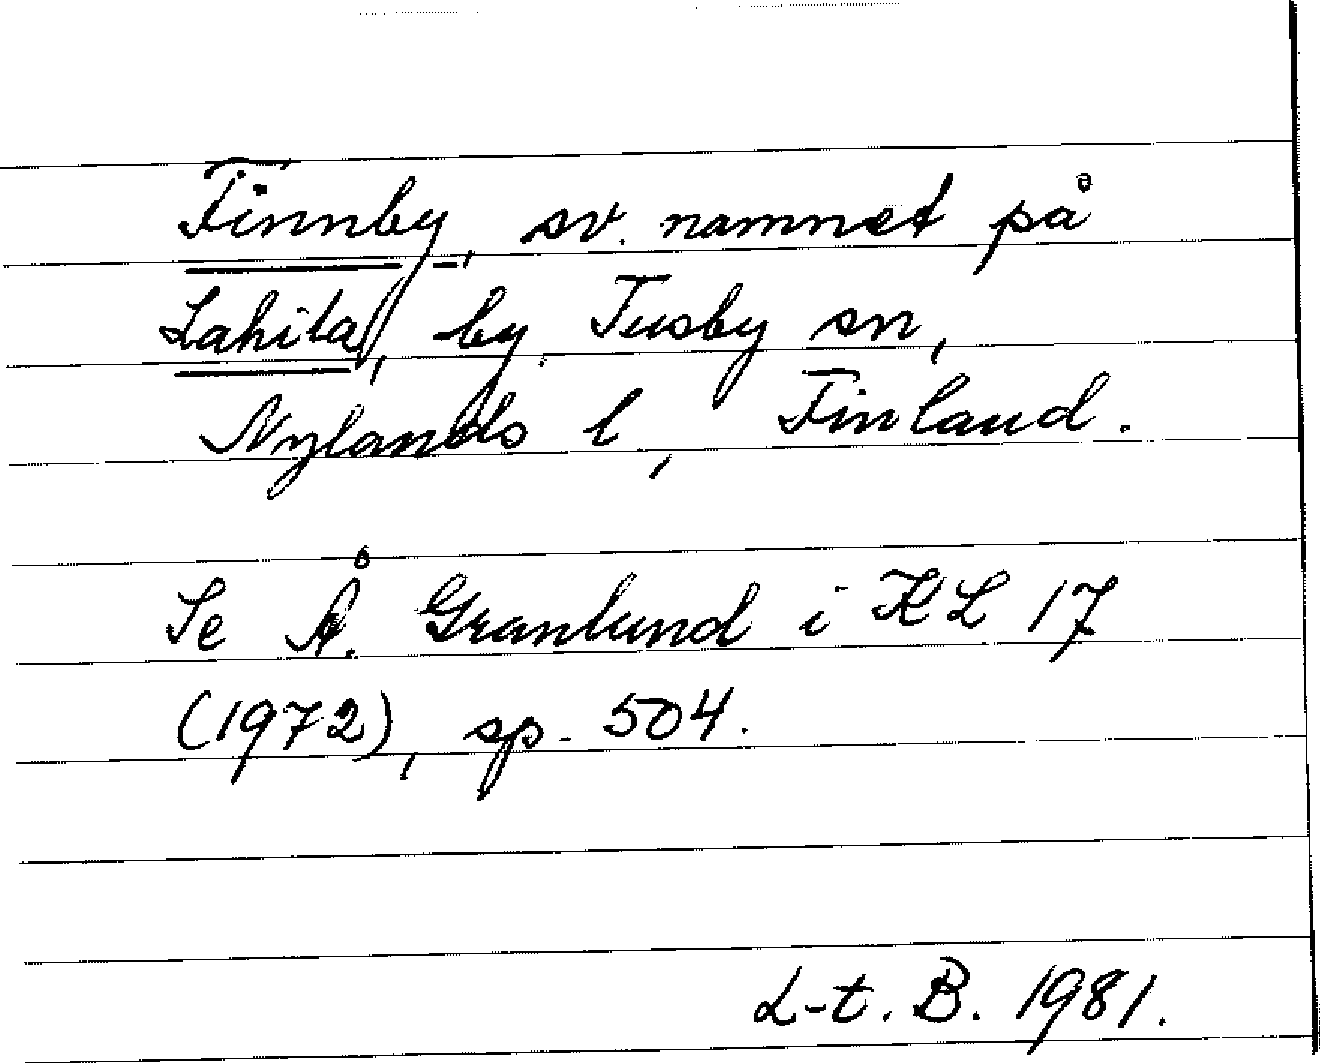 Finnby, sv. namnet på
Lahita, by Tusby sn,
Nylands l, Finland.
Se Å. Granlund i KL 17
(1972), sp. 504.
L-t. B. 1981.